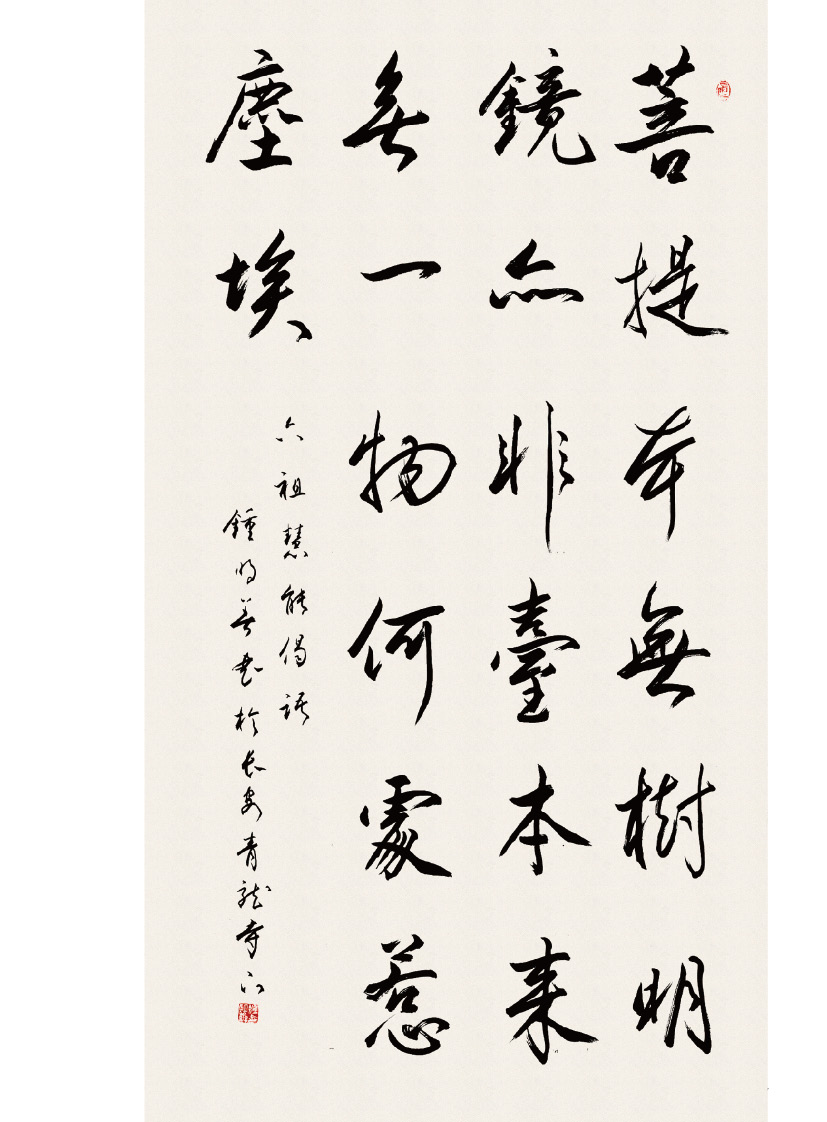 菩提本無樹明
鏡亦非臺本来
無一物何處惹
塵埃
六祖慧能偈語
鍾明善書於長安青龍寺下